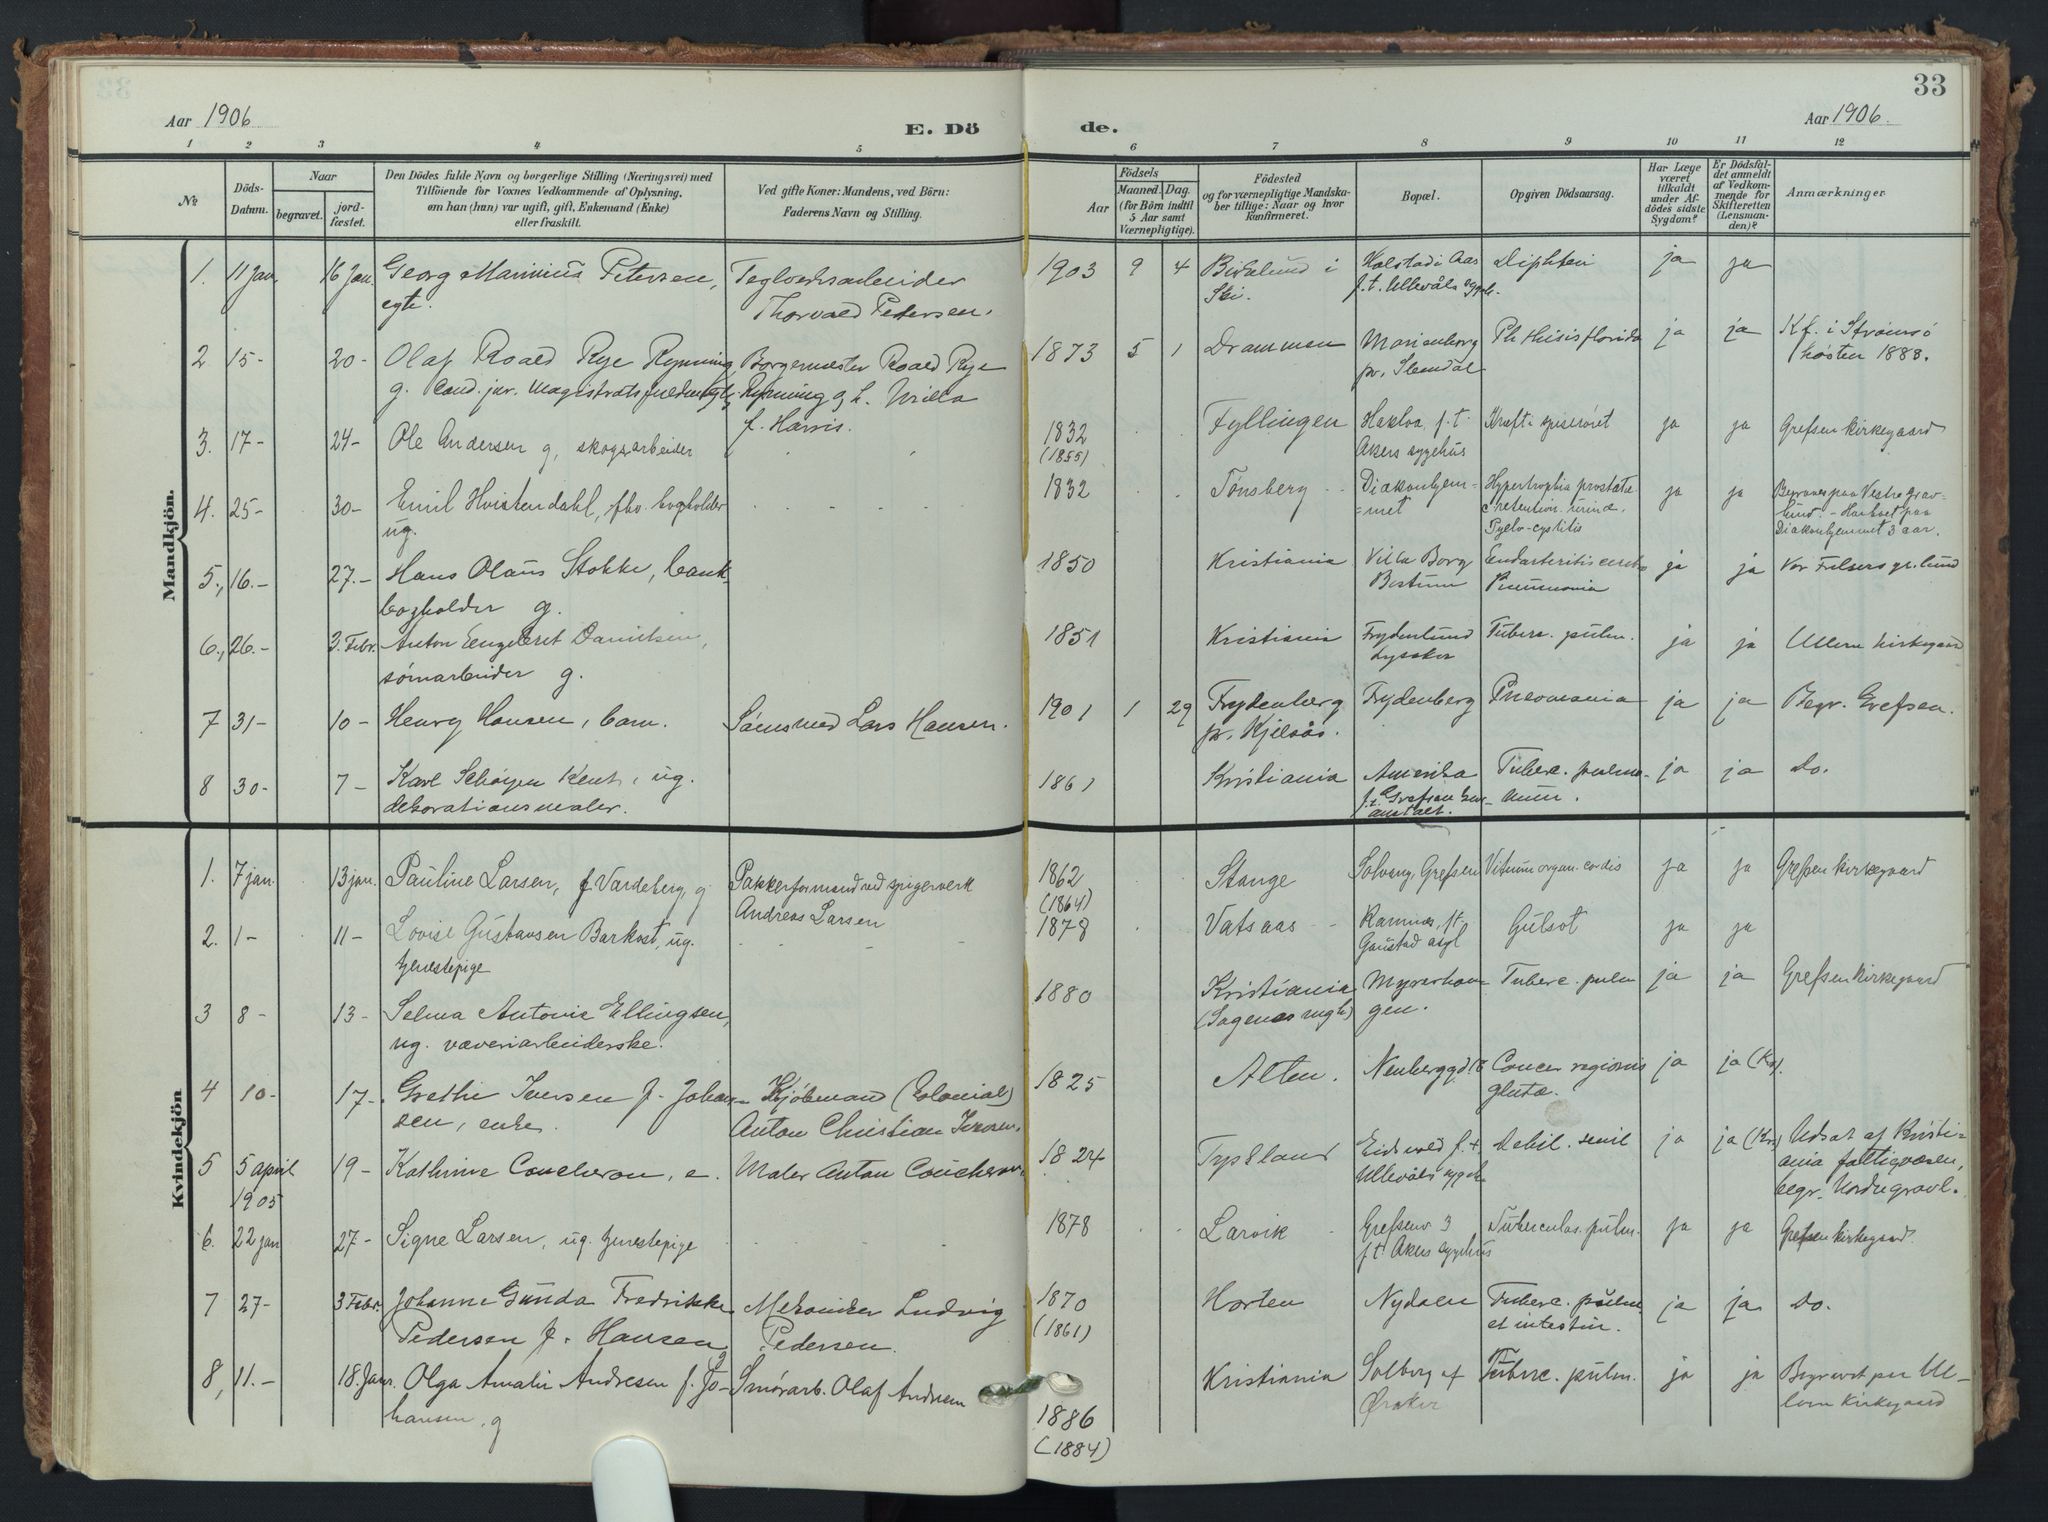 33
Aar 1906
E. Dö
de.
Aar 1906.
1 2 3 4 5 6 7 8 9 10 11 12
№
Döds-
Datum.
Naar
begravet.
jord-
fæstet.
Den Dödes fulde Navn og borgerlige Stilling (Næringsvei) med
Tilföiende for Voxnes Vedkommende af Oplysning,
om han (hun) var ugift, gift, Enkemand (Enke)
eller fraskilt.
Ved gifte Koner: Mandens, ved Börn:
Faderens Navn og Stilling.
Födsels
Aar
Maaned.
Dag.
(for Börn indtil
5 Aar samt
Værnepligtige).
Födested
og for værnepligtige Mandska-
ber tillige: Naar og hvor
konfirmeret.
Bopæl.
Opgiven Dödsaarsag.
Har Læge
været
tilkaldt
under Af-
dödes sidste
Sygdom?
Er Dödsfal-
det anmeldt
af Vedkom-
mende for
Skifteretten
(Lensman-
den)?
Anmærkninger
Mandkjön.
1. 11 Jan. 16 Jan. Georg Marinius Petersen, Teglverksarbeider 1903 9 4 Birkelund i Kolstad i Aas Diphteri ja ja
egte. Thorvald Pedersen. Ski. f.t. Ullevåls sygeh.
2 15- 20- Olaf Roald Rye Rynning Borgermester Roald Rye 1873 5 1 Drammen Marienborg Phthisis florida ja ja Kf. i Strömsö
g. Cand. jur. Magistratsfuldmægtig Rynning og h. Milla pr. Slemdal høsten 1888.
f. Harris.
3. 17- 24- Ole Andersen g, skogsarbeider 1832 Fyllingen Hakloa, f.t. Kræft i spiserøret ja ja Grefsen kirkegaard
(1855) Akers sygehus
4. 25- 30- Emil Hvistendahl, fhv. bogholder 1832 Tönsberg Diakonhjem- Hypertrophia prostatæ ja ja Begraves paa Vestre Grav-
ug. met retention. urinæ. lund. - Har boet paa
Pyelo-cystitis Diakonhjemmet 3 aar.
5., 16.- 27.- Hans Olaus Stokke, bank- 1850 Kristiania Villa Borg Endarteritis cerebr. ja ja Vor Frelsers gr.lund
bogholder g. Bestum Pneumonia
6., 26.- 3. Febr. Anton Engebret Danielsen, 1851 Kristiania Frydenlund Tuberc. pulm. ja ja Ullern kirkegaard
sømarbeider g. Lysaker
7 31- 10- Henry Hansen, barn. Sømsmed Lars Hansen. 1901 1 29 Frydenberg Frydenberg Pneomonia ja ja Begr. Grefsen.
pr. Kjelsås.
8 30- 7- Karl Schøyen Kent, ug. 1861 Kristiania Amerika Tuberc. pulmo- ja ja Do.
dekorationsmaler. f.t. Grefsen num.
anstalt.
Kvindekjön
1. 7 jan. 13 jan. Pauline Larsen, f. Vardeberg, g Pakkerformand ved spigerverk 1862 Stange Solvang, Grefsen Vitium organ. cordis ja ja Grefsen kirkegaard
Andreas Larsen (1864)
2. 1- 11- Lovise Gustavsen Barkost, ug. 1878 Vatsaas Ramnæs, ft. Gulsot ja ja
tjenestepige Gaustad asyl
3 8- 13- Selma Antonie Ellingsen, 1880 Kristiania Myrerskou- Tuberc. pulm ja ja Grefsen kirkegaard
ug. væveriarbeiderske. (Sagenes mgh) gen.
4 10- 17- Grethe Iversen f. Johan- Kjöbmand (Colonial) 1825 Alten. Neuberggd. Cancer regionis ja ja (Kr).
sen, enke. Anton Christian Iversen. glutæ.
5 5 april 19- Kathrine Coucheron, e. Maler Anton Coucheron. 1824 Tyskland Eidsvold f.t. Debil. senil ja ja (Kr) Udsat af Kristi-
1905 Ullevåls sygeh. ania fattigvæsen,
begr. Nordre gravl.
6. 22 jan 27- Signe Larsen, ug. tjenestepige 1878 Larvik Grefsenv. 3 Tuberculos. pulm. ja ja Grefsen kirkegaard.
f.t. Akers sygehus
7 27- 3 Febr. Johanne Gunda Fredrikke Mekaniker Ludvig 1870 Horten Nydalen Tuberc. pulm. ja ja Do.
Pedersen f. Hansen Pedersen. (1861) et intestin.
8, 11.- 18. Janr. Olga Amalie Andresen f. Jo- Smörarb. Olaf Andresen 1886 Kristiania Solberg af Tuberc. pulm. ja ja Begravet paa Ul-
hansen, g (1884) Øraker lern Kirkegaard